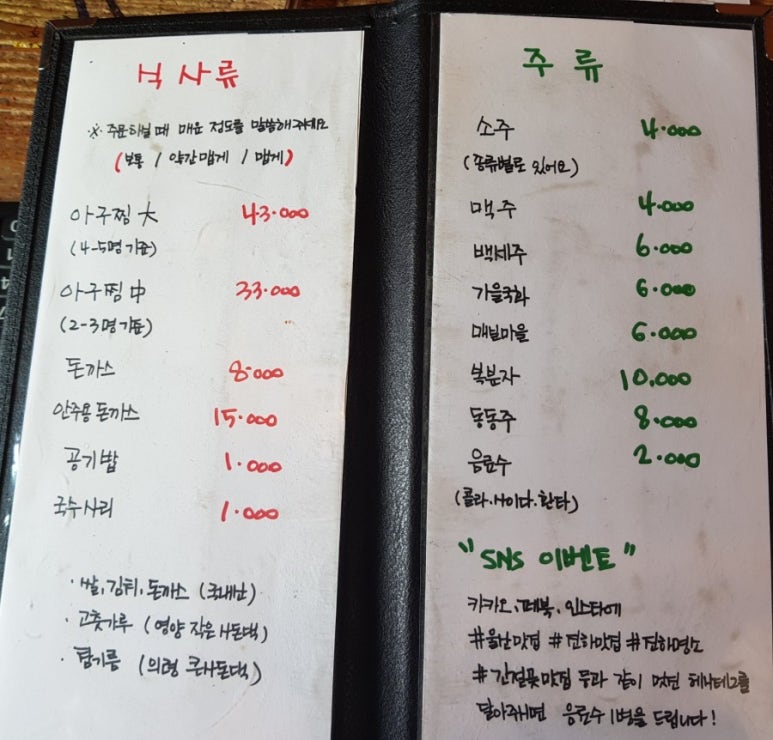 식사류
※ 주문하실 때 매운 정도를 말씀해주세요
(보통 / 약간맵게 / 맵게)
아구찜 大 43.000
(4-5명 기준)
아구찜 中 33.000
(2-3명 기준)
돈까스 8.000
안주용 돈까스 15.000
공기밥 1.000
국수사리 1.000
· 쌀, 김치, 돈까스 (국내산)
· 고춧가루 (영양 작은사돈댁)
· 참기름 (의령 큰사돈댁)
주류
소주 4.000
(종류별로 있어요)
맥주 4.000
백세주 6.000
가을국화 6.000
매실마을 6.000
복분자 10,000
동동주 8.000
음료수 2.000
(콜라.사이다.환타)
"SNS 이벤트"
카카오, 페북, 인스타에
#울산맛집 #전하맛집 #전하명소
맛집 등과 같이 멋진 해시태그를
달아주시면 음료수 1병을 드립니다!